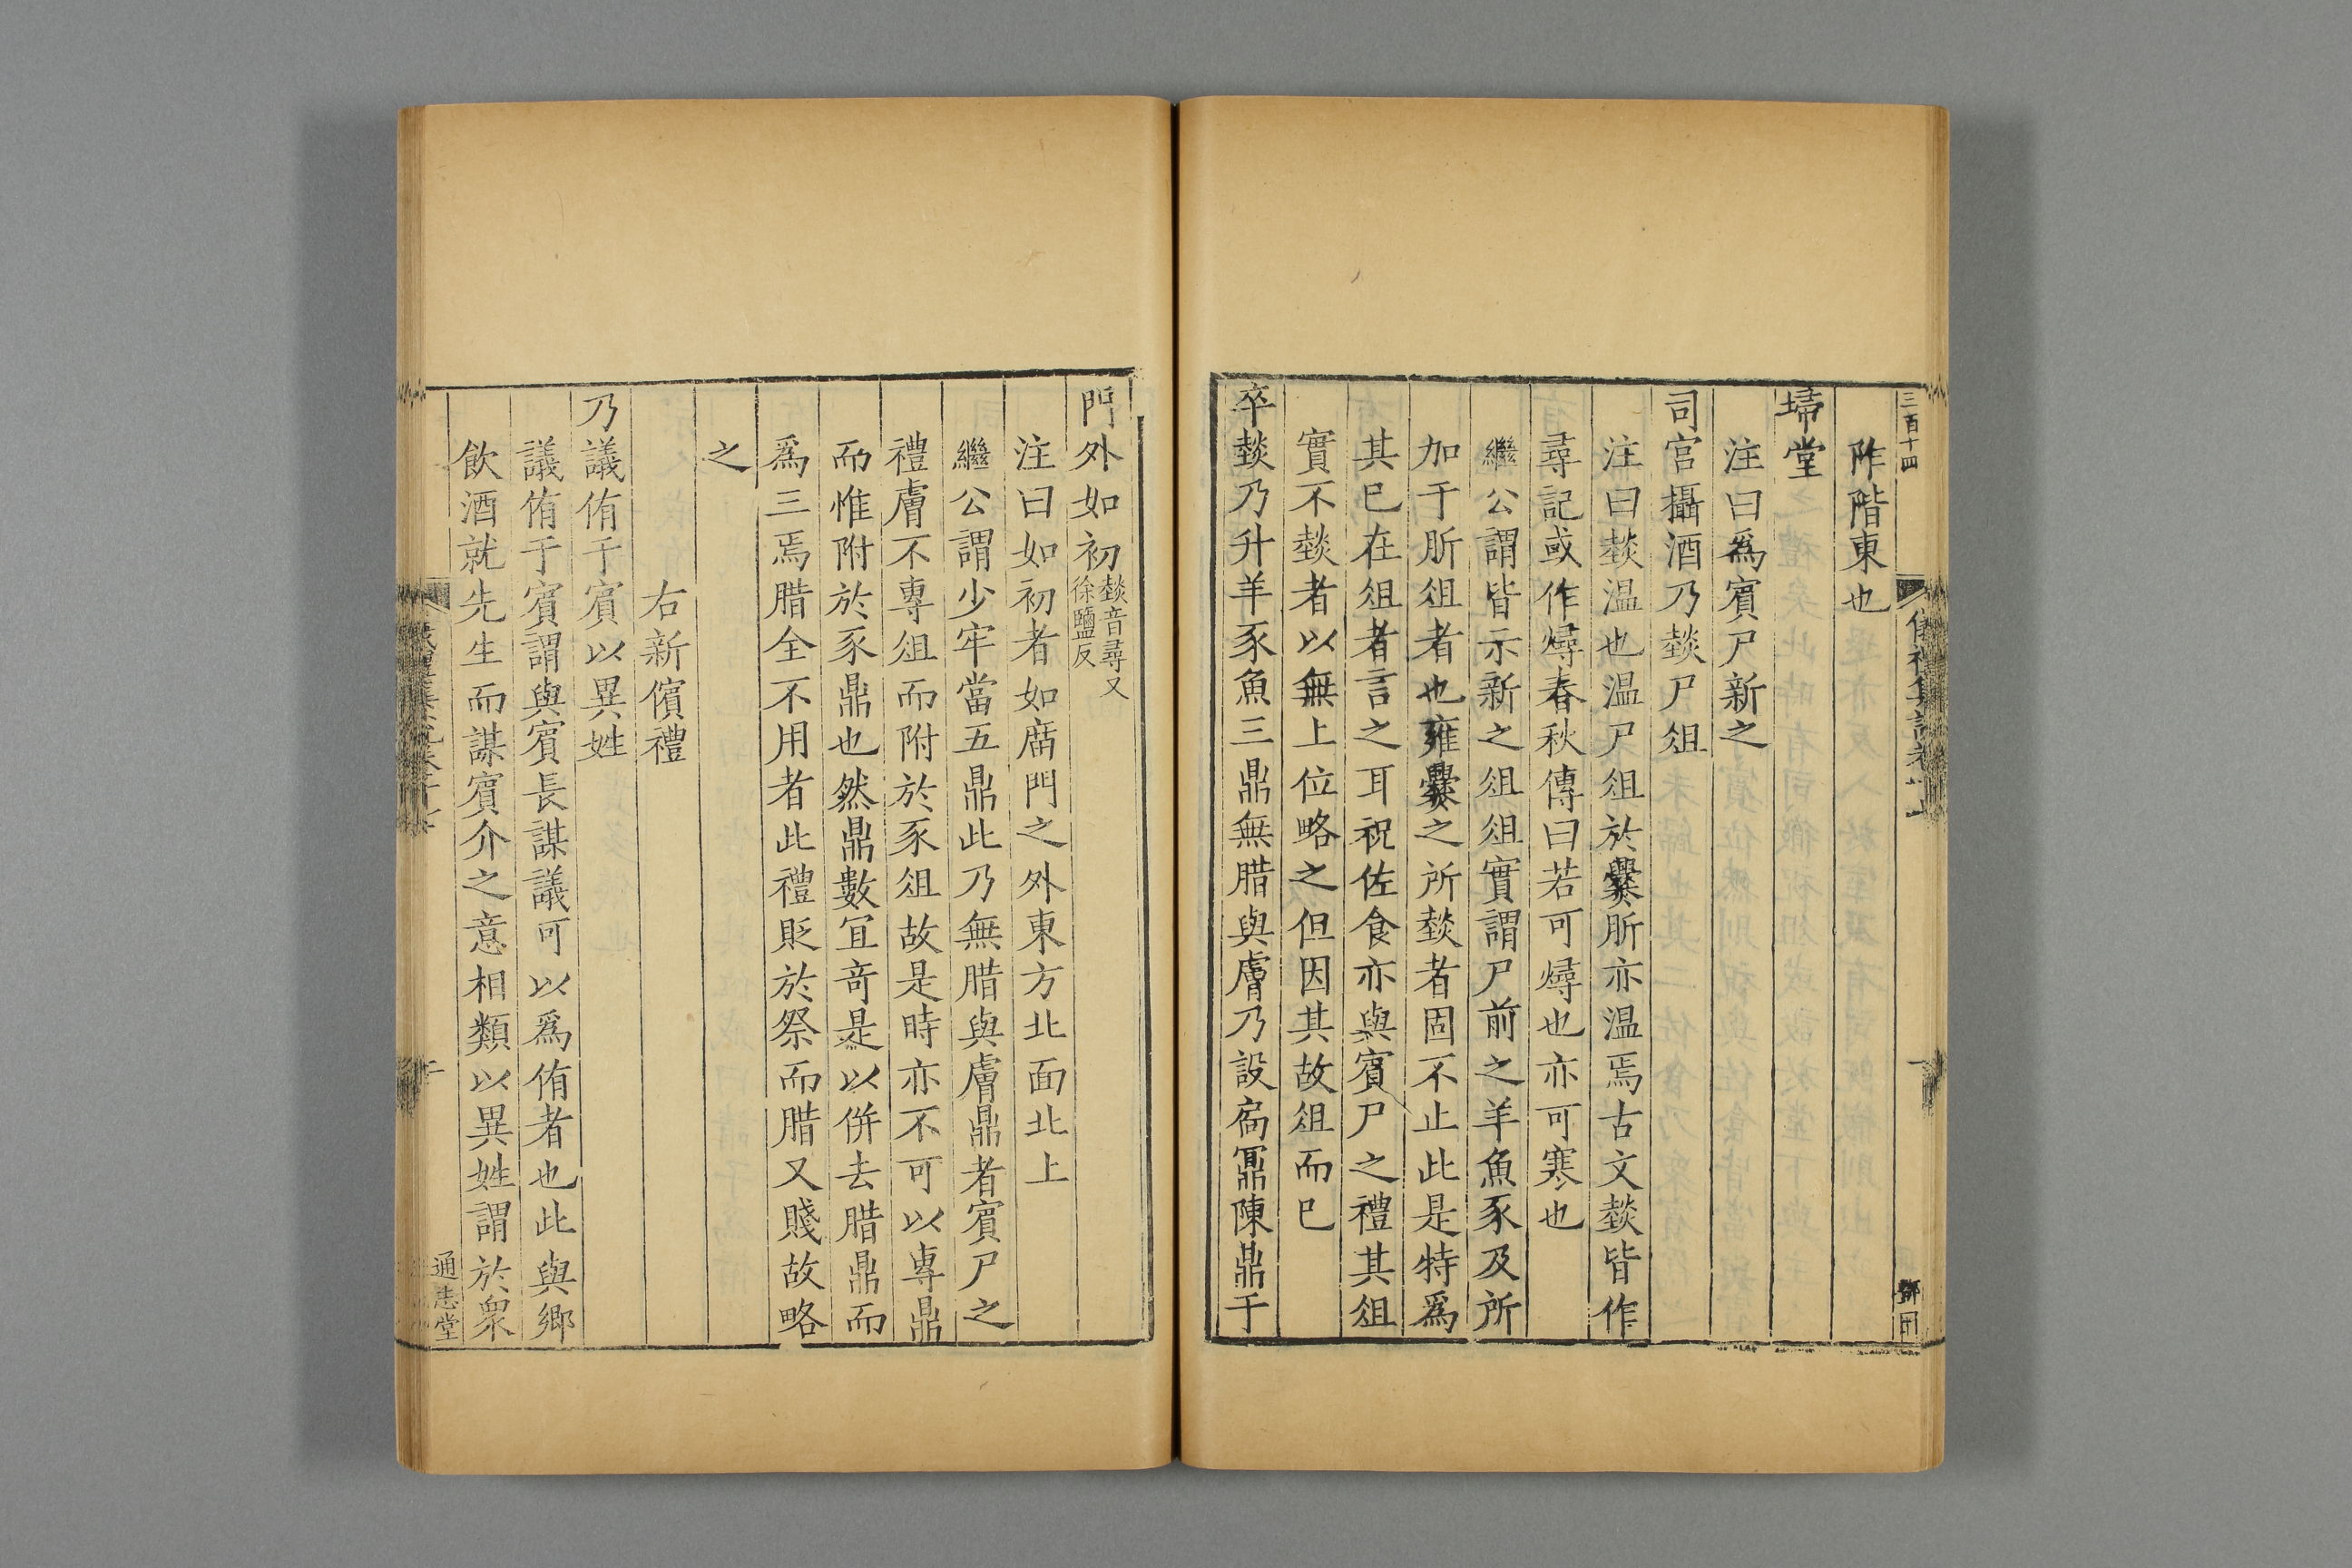 三百十四
儀禮集說卷十七
一
鄧国
阼階東也
埽堂
注曰爲賔尸新之
司宫攝酒乃燅尸俎
注曰燅温也温尸俎於爨肵亦温焉古文燅皆作
尋記或作燖春秋傳曰若可燖也亦可寒也
繼公謂皆示新之俎俎實謂尸前之羊魚豕及所
加于肵俎者也雍爨之所燅者固不止此是特爲
其已在俎者言之耳祝佐食亦與賔尸之禮其俎
實不燅者以無上位略之但因其故俎而已
卒燅乃升羊豕魚三鼎無腊與膚乃設扃鼏陳鼎于
門外如初燅音尋又
徐鹽反
注曰如初者如庿門之外東方北面北上
繼公謂少牢當五鼎此乃無腊與膚鼎者賔尸之
禮膚不專俎而附於豕俎故是時亦不可以專鼎
而惟附於豕鼎也然鼎數宜奇是以併去腊鼎而
爲三焉腊全不用者此禮貶於祭而腊又賤故略
之
右新儐禮
乃議侑于賔以異姓
議侑于賔謂與賔長謀議可以爲侑者也此與鄉
飲酒就先生而謀賔介之意相類以異姓謂於衆
儀禮集說卷十七
二
通志堂